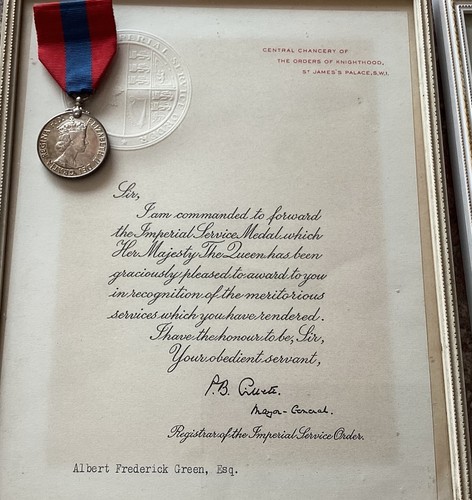 CENTRAL CHANCERY OF
THE ORDERS OF KNIGHTHOOD,
ST JAMES'S PALACE, S.W.1.
IMPERIAL SERVICE
Sir,
I am commanded to forward
the Imperial Service Medal which
Her Majesty The Queen has been
graciously pleased to award to you
in recognition of the meritorious
services which you have rendered.
I have the honour to be, Sir,
Your obedient servant,
P.B. Gillett.
Major-General.
Registrar of the Imperial Service Order.
Albert Frederick Green, Esq.